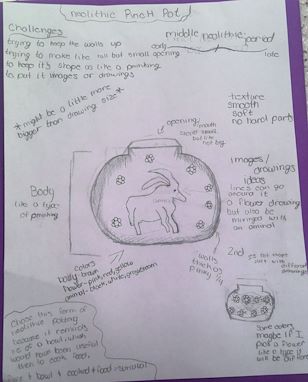 neolithic Pinch Pot
Challenges
trying to keep the walls up
trying to make it tall but small opening
to keep its shape as like a
to put it images or drawings
middle neolithic period
early
late
*might be a little more
bigger than drawing size*
opening/mouth
small
but like
not big
-texture
smooth
soft
no hard parts
images/
drawings
ideas
lines can go
around it
a flower drawing
but also be
with an
animal
Body
like a type
of
colors
body brown
flower - pink, red, yellow
animal - black, white,
walls
2nd
different
drawings
same colors
maybe if I
pick a flower
like a type it
will be different
Chose this form of
neolithic pottery
because it reminds
me of a bowl which
would have been useful
then to cook food.
bowl + cooked + food = survival